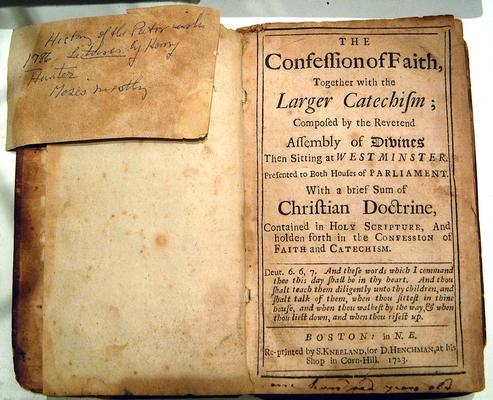 History of the
1786. Lectures by Henry
Hunter.
Moses
THE
Confeſſion of Faith,
Together with the
Larger Catechiſm;
Compoſed by the Reverend
Aſſembly of Divines
Then Sitting at WESTMINSTER.
Preſented to Both Houſes of PARLIAMENT.
With a brief Sum of
Chriſtian Doctrine,
Contained in HOLY SCRIPTURE, And
holden forth in the CONFESSION of
FAITH and CATECHISM.
Deut. 6. 6, 7. And theſe words which I command
thee this day ſhall be in thy heart. And thou
ſhalt teach them diligently unto thy children, and
ſhalt talk of them, when thou ſitteſt in thine
houſe, and when thou walkeſt by the way, & when
thou lieſt down, and when thou riſeſt up.
BOSTON: in N. E.
Re-printed by S. KNEELAND, for D. HENCHMAN, at his
Shop in Corn-Hill. 1723.
one hundred years old